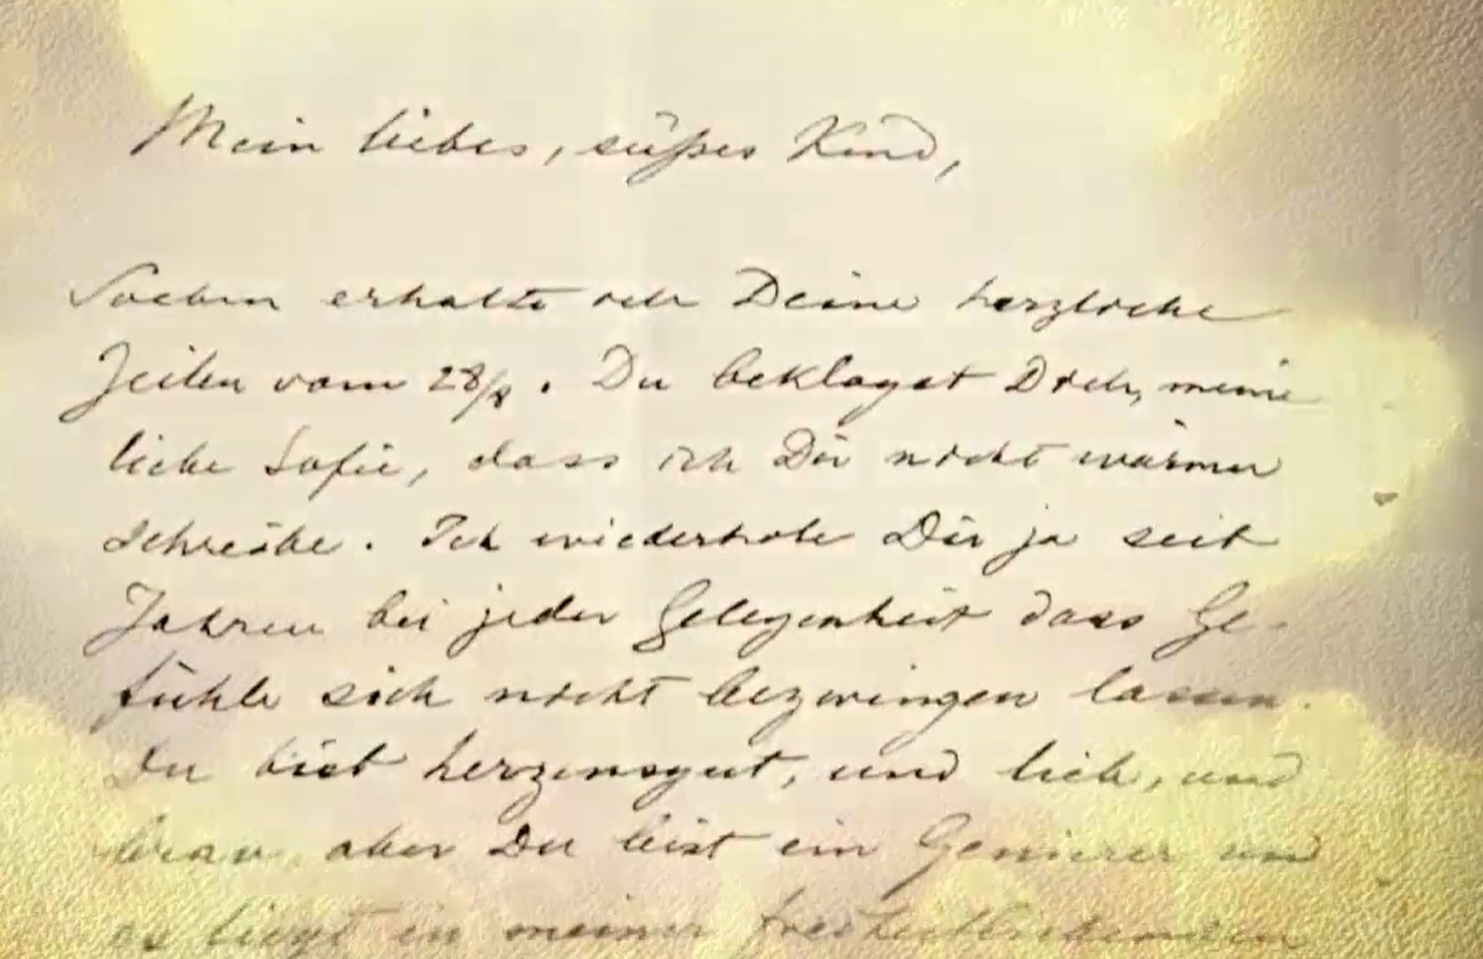 Mein liebes, süßes Kind,
Soeben erhalte ich Deine herzliche
Zeilen vom 28/8. Du beklagst Dich, meine
liebe Sofie, dass ich Dir nicht wärmer
schreibe. Ich wiederhole Dir ja seit
Jahren bei jeder Gelegenheit dass Ge-
fühle sich nicht bezwingen lassen.
Du bist herzensgut, und lieb, und
brav, aber Du bist ein und
es liegt in meiner freiheitliebenden